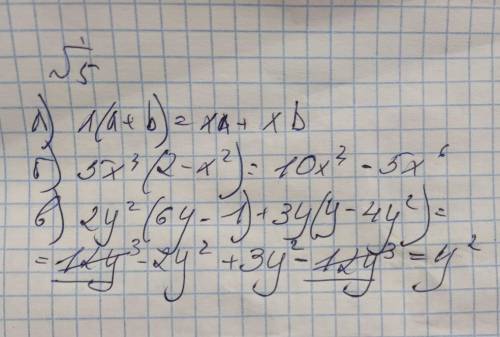 √5
а) x(a+b) = xa + xb
б) 5x³(2-x²) = 10x³ - 5x⁶
в) 2y²(6y - 1) + 3y(y - 4y²) =
= 12y³ - 2y² + 3y² - 12y³ = y²